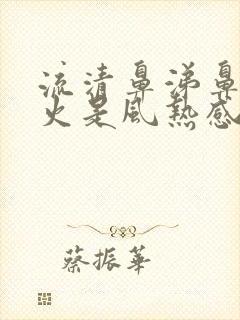 流清鼻涕鼻
火是風熱感
蔡振華